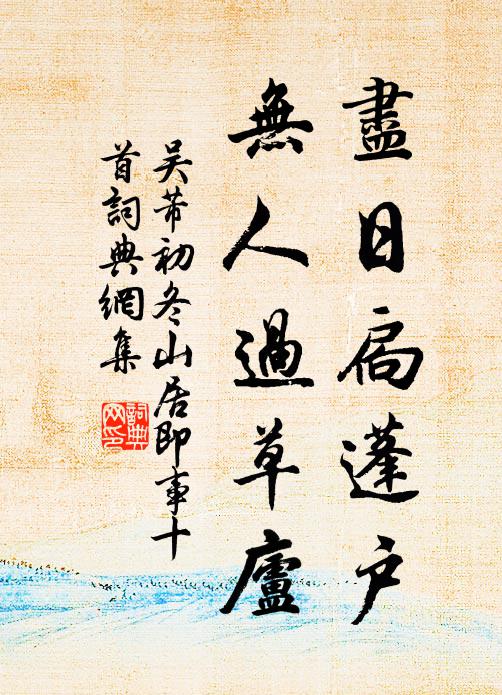 盡日扃蓬户
無人過草廬
吴芾初冬山居即事十
首詞典網集
詞典
网印